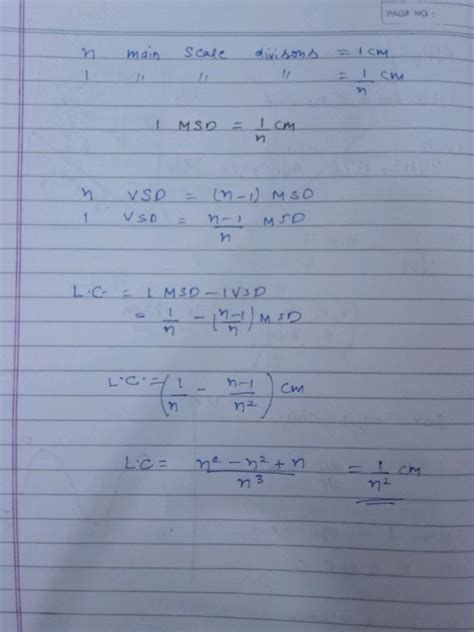 PAGE NO.:
n main scale divisons = 1 cm
1 " " " = 1/n cm
1 MSD = 1/n cm
n VSD = (n-1) MSD
1 VSD = n-1/n MSD
L.C. = 1 MSD - 1 VSD
= 1/n - (n-1/n) MSD
L.C. = (1/n - n-1/n²) cm
L.C = n² - n² + n / n³ = 1/n² cm